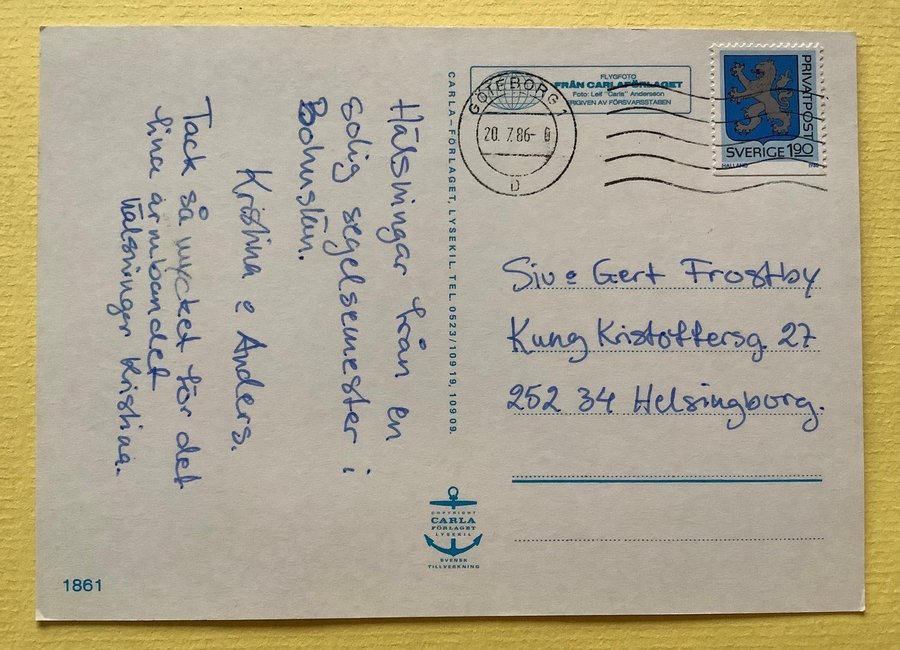 Hälsningar från en
solig segelsemester i
Bohuslän.
Kristina o Anders.
Tack så mycket för det
fina armbandet
Hälsningar Kristina.
1861
CARLA-FÖRLAGET, LYSEKIL. TEL. 0523/109 19, 109 09.
COPYRIGHT
CARLA
FÖRLAGET
LYSEKIL
SVENSK
TILLVERKNING
FLYGFOTO
FRÅN CARLAFÖRLAGET
Foto: Leif "Carla" Andersson
FRIGIVEN AV FÖRSVARSSTABEN
GÖTEBORG 1
20. 7.86-
D
PRIVATPOST
SVERIGE 1.90
HALLAND
Siv o Gert Frostby
Kung Kristoffersg. 27
252 34 Helsingborg.